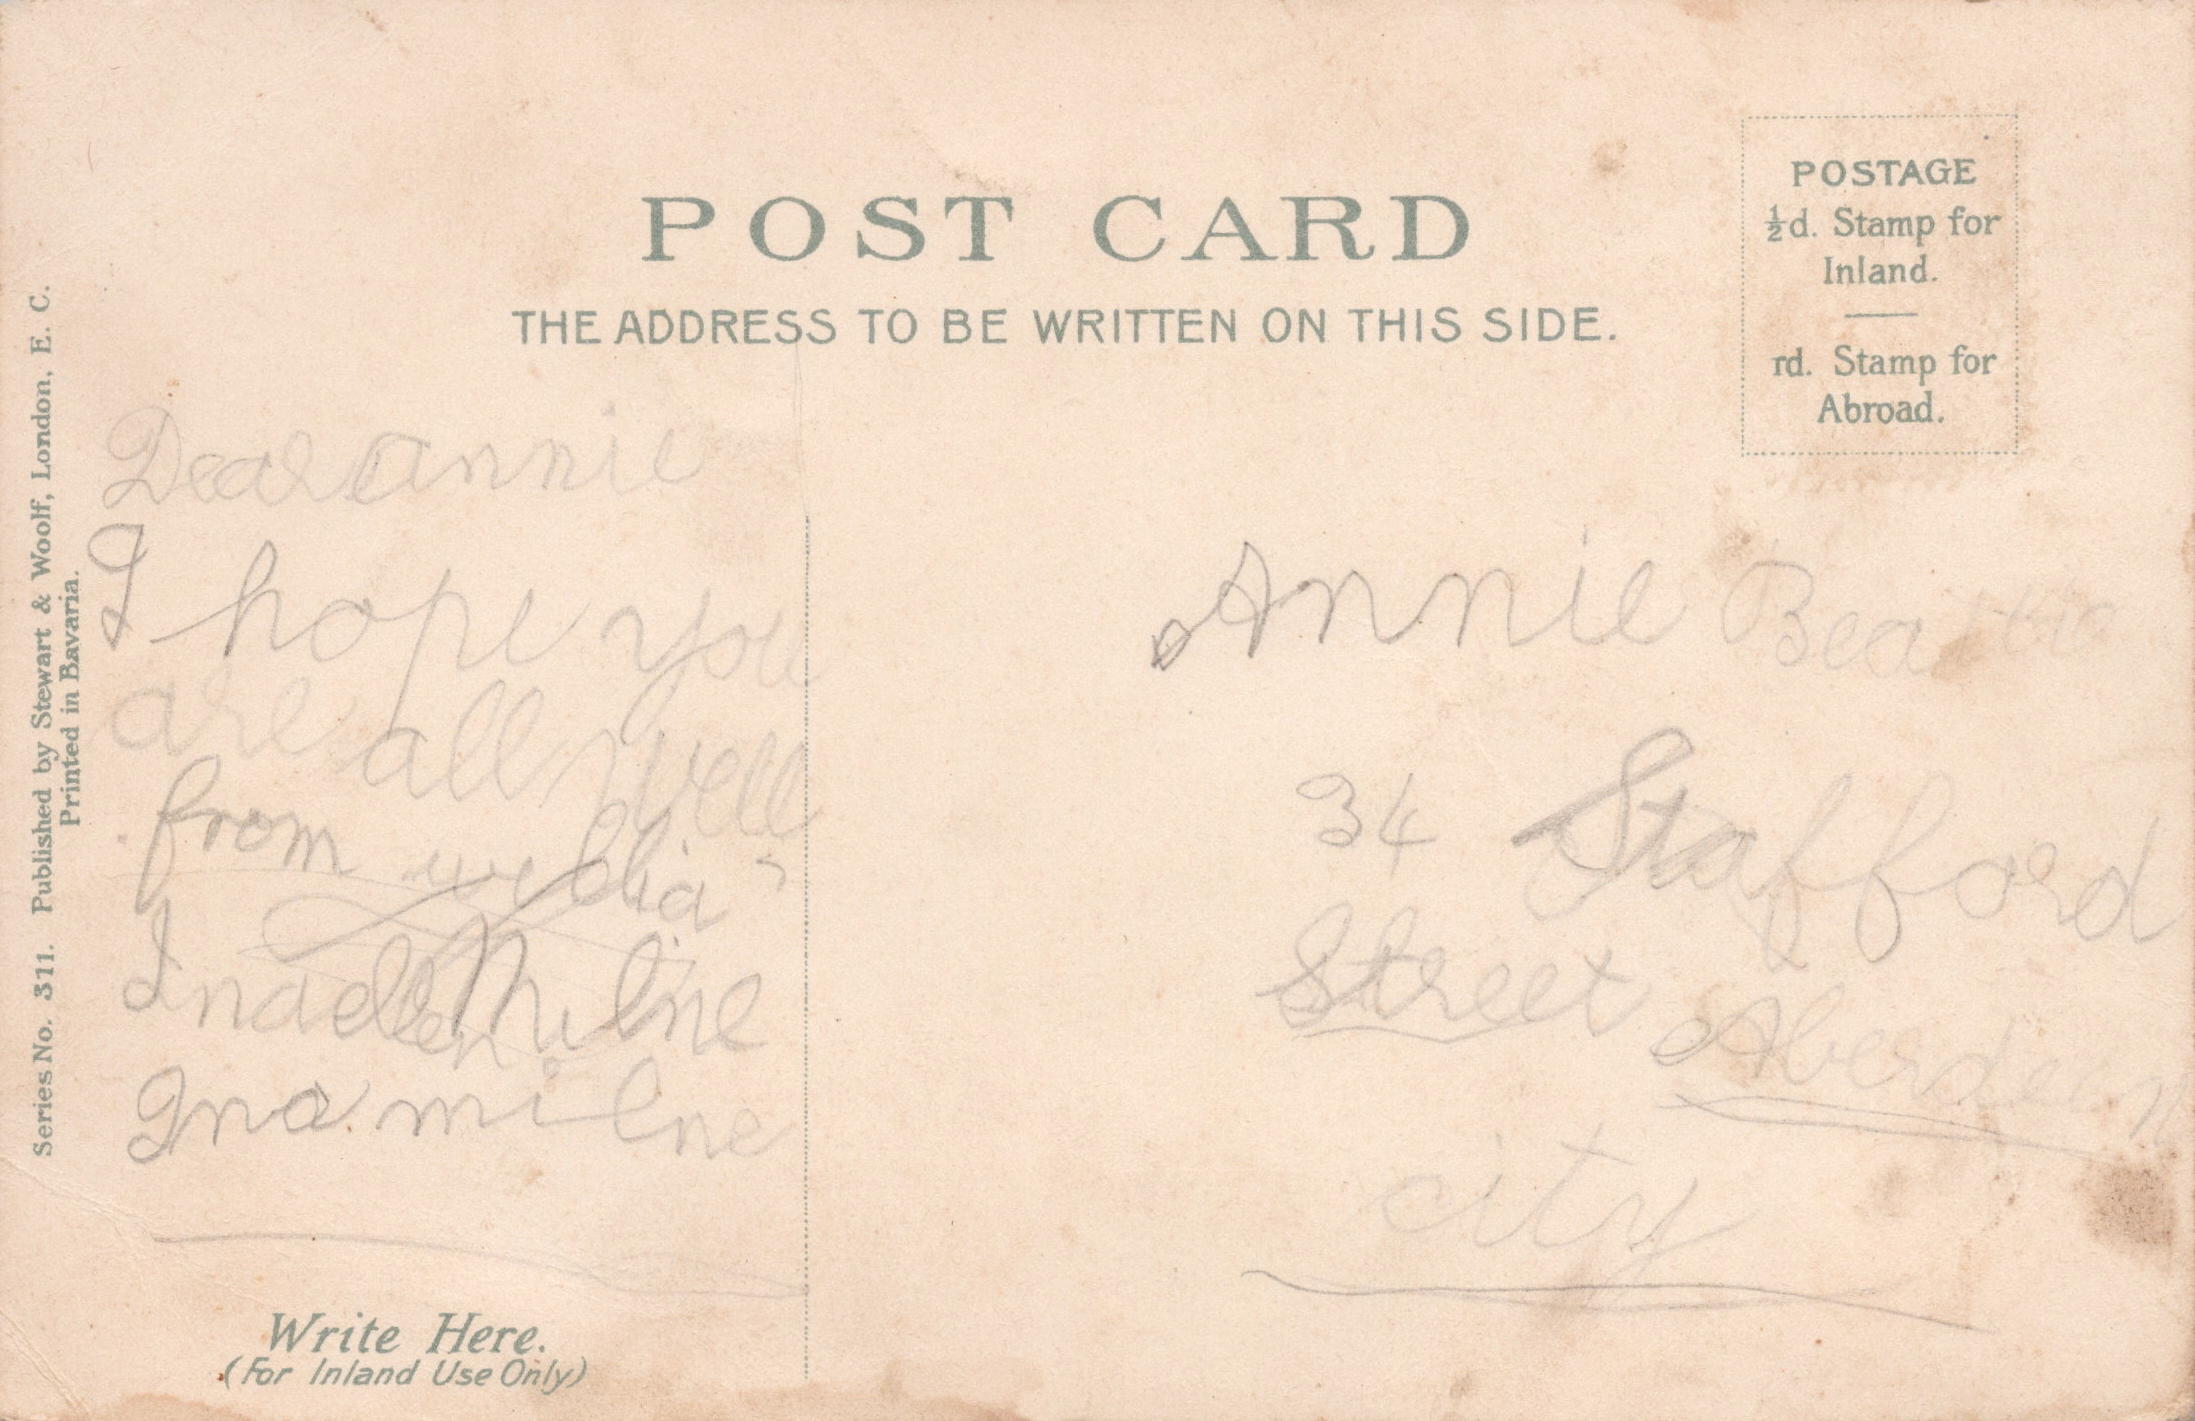 POST CARD
THE ADDRESS TO BE WRITTEN ON THIS SIDE.
POSTAGE
½d. Stamp for
Inland.
rd. Stamp for
Abroad.
Series No. 311. Published by Stewart & Woolf, London, E. C.
Printed in Bavaria.
Dear annie
I hope you
are all well
from
Milne
Ina milne
Write Here.
(For Inland Use Only)
Annie
34 Stafford
Street Aberdeen
city